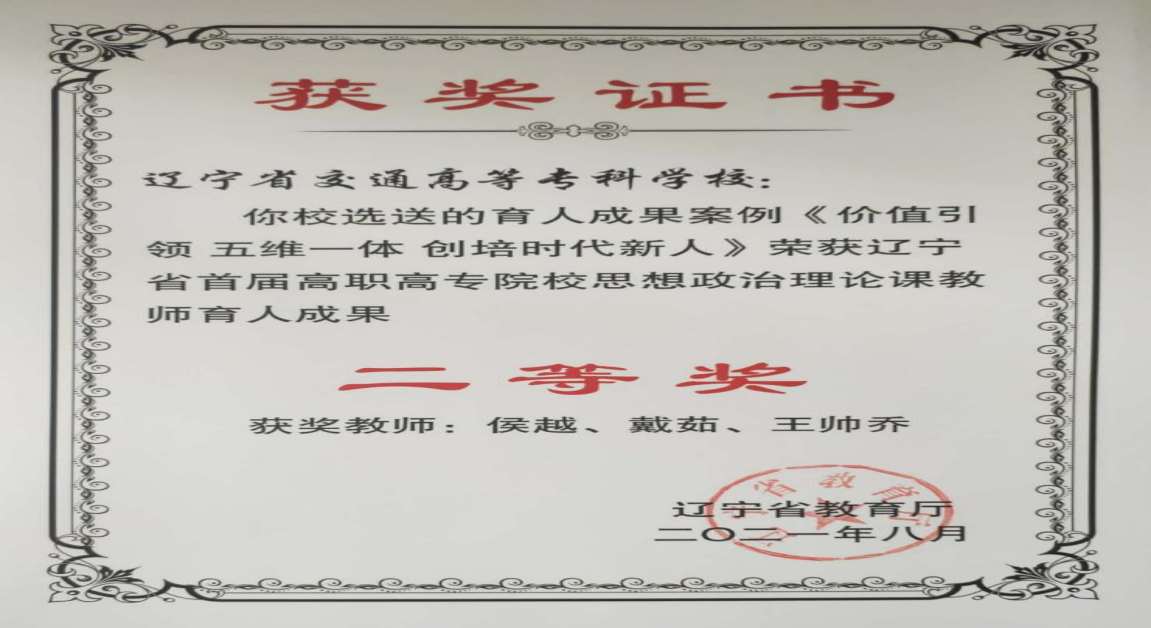 获奖证书
辽宁省交通高等专科学校：
你校选送的育人成果案例《价值引
领 五维一体 创培时代新人》荣获辽宁
省首届高职高专院校思想政治理论课教
师育人成果
二等奖
获奖教师：侯越、戴茹、王帅乔
辽宁省教育厅
二〇二一年八月
辽宁省教育厅